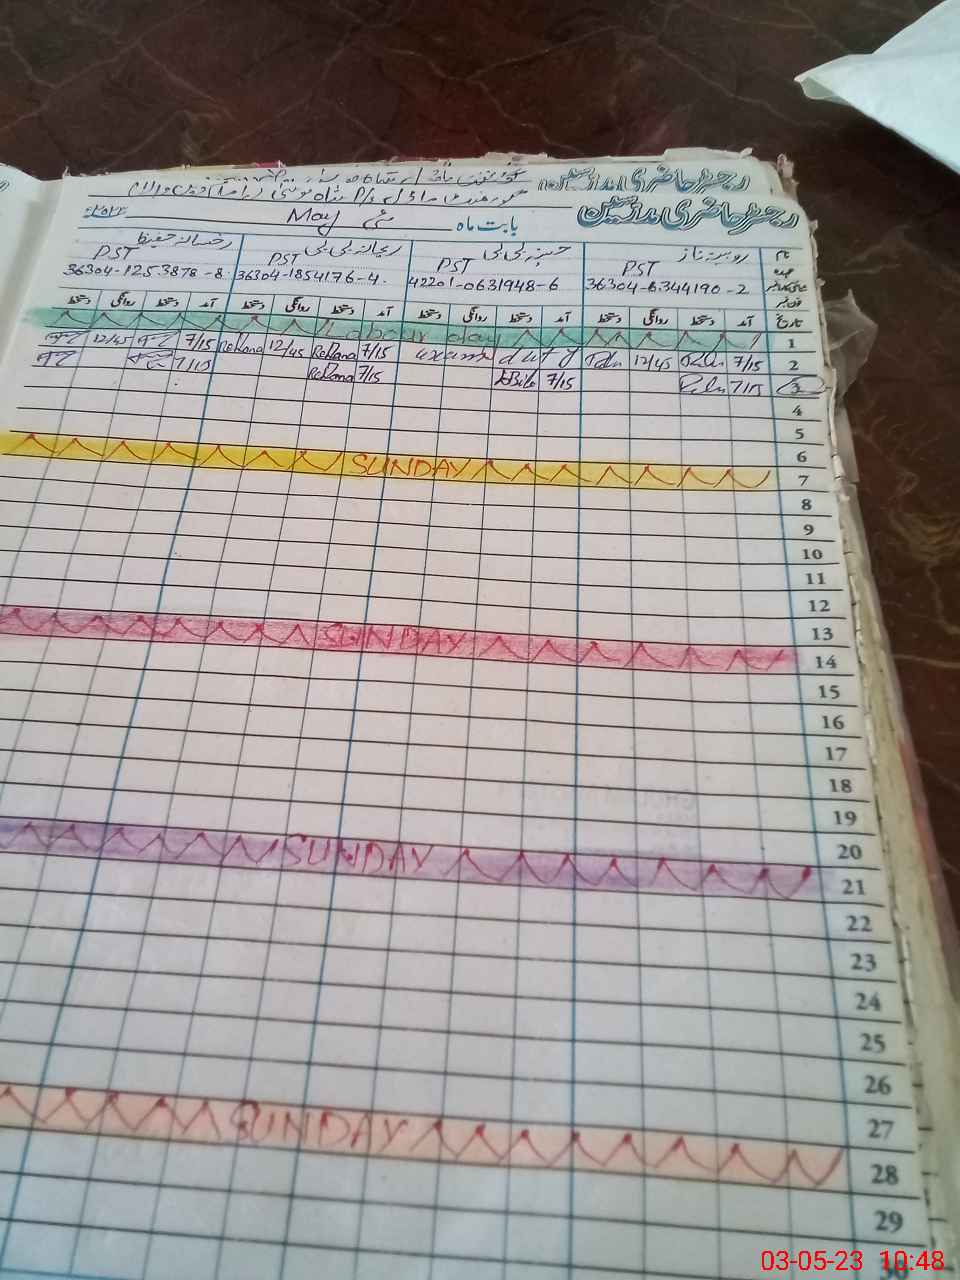 رجسٹر حاضری مدرسین
رجسٹر حاضری مدرسین
بابت ماہ مئی May
نام روبینہ ناز حسینہ بی بی ریحانہ بی بی رخسانہ حفیظ
عہدہ PST PST PST PST
36304-6344190-2 42201-0631948-6 36304-1854176-4. 36304-1253878-8.
تاریخ آمد دستخط روانگی دستخط آمد دستخط روانگی دستخط آمد دستخط روانگی دستخط آمد دستخط روانگی دستخط
1 Labour day
2 7/15 12/45 exams duty 7/15 Rehana 12/45 Rehana 7/15 12/45
3 7/15 7/15 7/15 Rehana 7/15
4
5
6
7 SUNDAY
8
9
10
11
12
13
14 SUNDAY
15
16
17
18
19
20
21 SUNDAY
22
23
24
25
26
27
28 SUNDAY
29
03-05-23 10:48